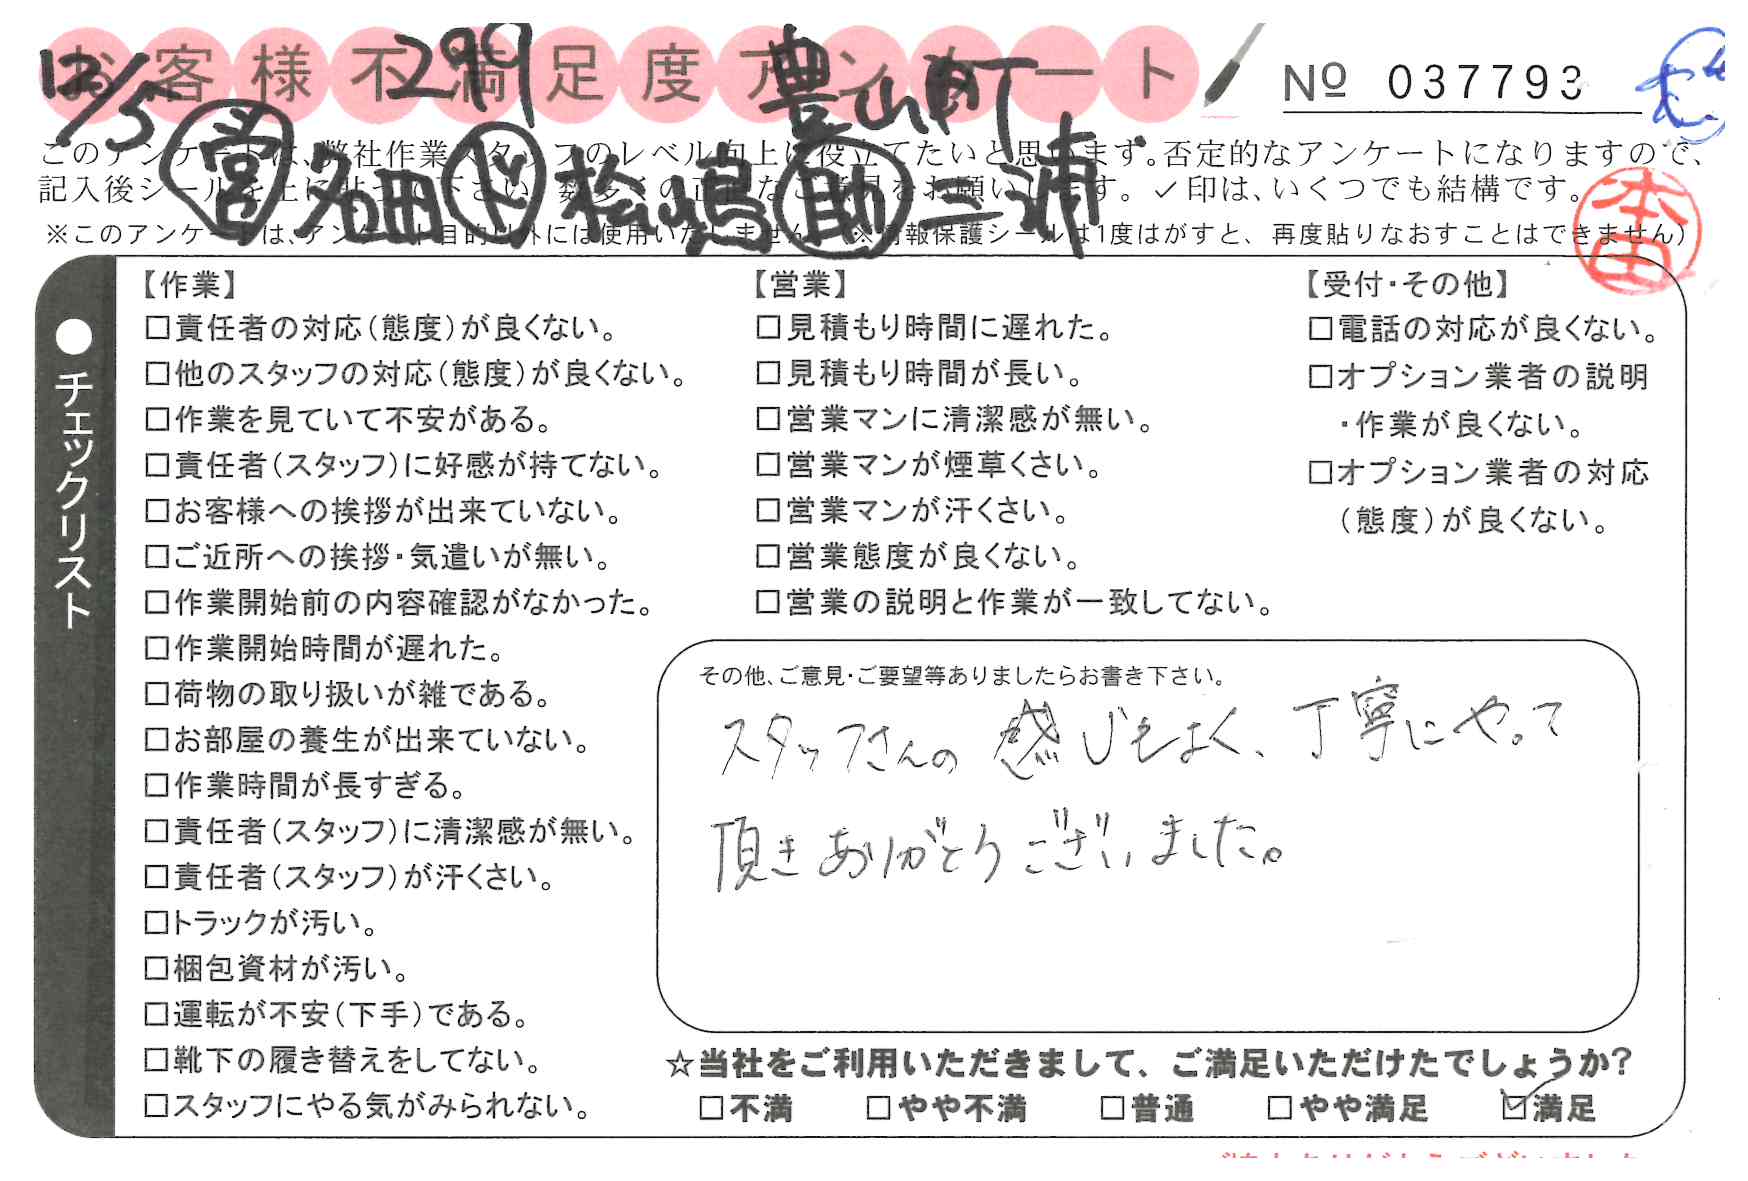 お客様不満足度アンケート
12/5 299 豊山町
№ 037793
このアンケートは、弊社作業スタッフのレベル向上に役立てたいと思います。否定的なアンケートになりますので、
記入後シールを上に貼って下さい。数多くの正直なご意見をお願いします。✓印は、いくつでも結構です。
※このアンケートは、アンケート目的以外には使用いたしません。(※情報保護シールは1度はがすと、再度貼りなおすことはできません)
営 名畑 ド 松嶋 助 三浦
本田
●チェックリスト
【作業】
□責任者の対応(態度)が良くない。
□他のスタッフの対応(態度)が良くない。
□作業を見ていて不安がある。
□責任者(スタッフ)に好感が持てない。
□お客様への挨拶が出来ていない。
□ご近所への挨拶・気遣いが無い。
□作業開始前の内容確認がなかった。
□作業開始時間が遅れた。
□荷物の取り扱いが雑である。
□お部屋の養生が出来ていない。
□作業時間が長すぎる。
□責任者(スタッフ)に清潔感が無い。
□責任者(スタッフ)が汗くさい。
□トラックが汚い。
□梱包資材が汚い。
□運転が不安(下手)である。
□靴下の履き替えをしてない。
□スタッフにやる気がみられない。
【営業】
□見積もり時間に遅れた。
□見積もり時間が長い。
□営業マンに清潔感が無い。
□営業マンが煙草くさい。
□営業マンが汗くさい。
□営業態度が良くない。
□営業の説明と作業が一致してない。
【受付・その他】
□電話の対応が良くない。
□オプション業者の説明
・作業が良くない。
□オプション業者の対応
(態度)が良くない。
その他、ご意見・ご要望等ありましたらお書き下さい。
スタッフさんの感じもよく、丁寧にやって
頂きありがとうございました。
☆当社をご利用いただきまして、ご満足いただけたでしょうか?
□不満 □やや不満 □普通 □やや満足 ☑満足